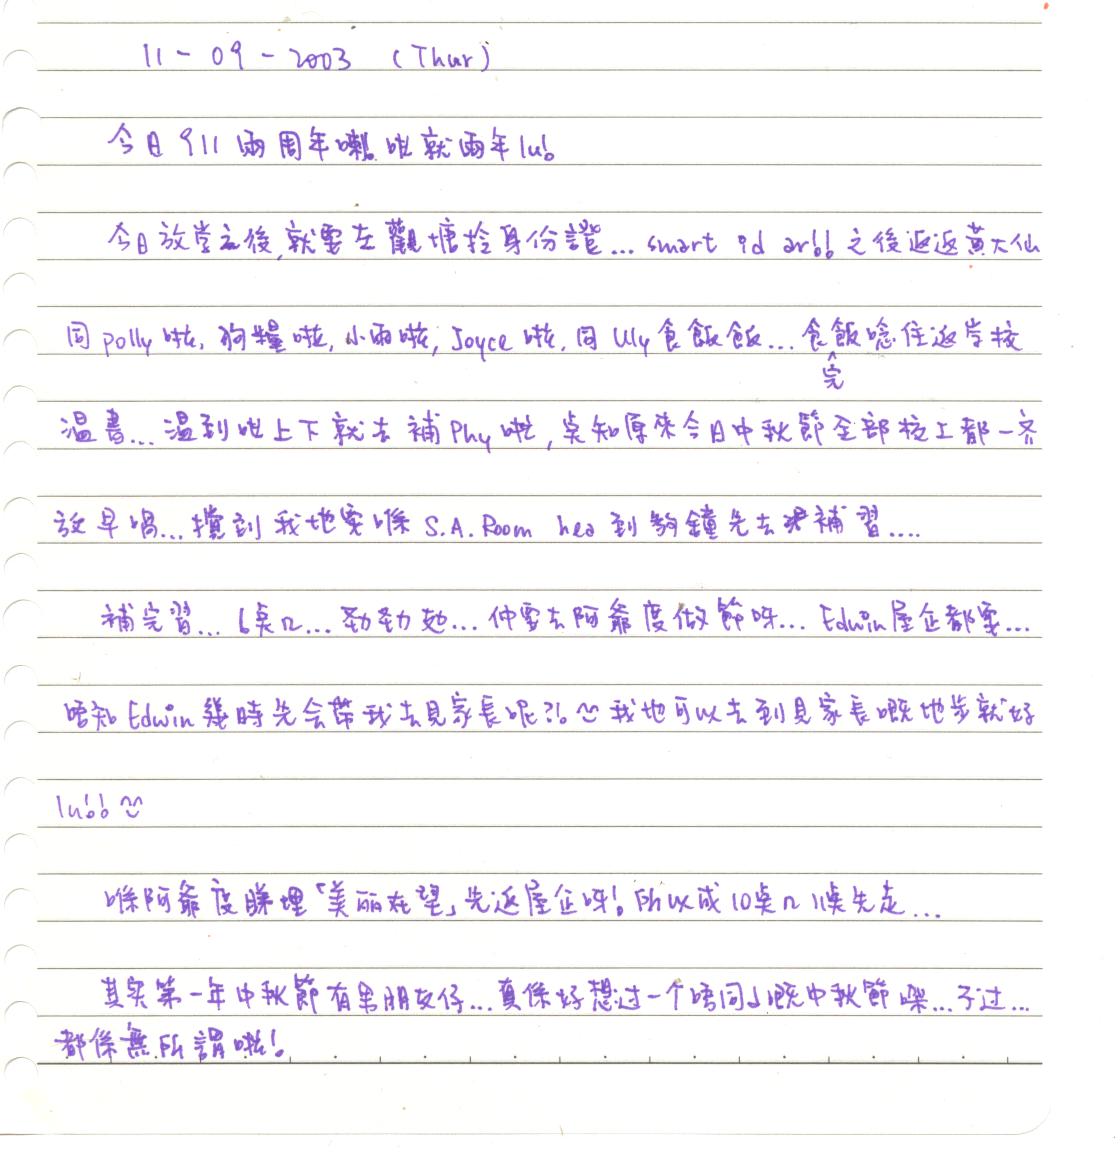 11-09-2003 (Thur)
今日911兩周年喇! 咁就兩年lu!
今日放堂之後,就要去觀塘拎身份證... smart id ar!! 之後返返黃大仙
同polly啦, 狗糧啦, 小雨啦, Joyce啦, 同Uly食飯飯... 食完飯唸住返学校
温書... 温到咁上下就去補Phy啦, 點知原來今日中秋節全部校工都一齐
放早喎... 攪到我地要喺S.A.Room hea到夠鐘先去補習....
補完習... 6點几... 劲劲攰... 仲要去阿爺度做節呀... Edwin屋企都要...
唔知Edwin幾時先会帶我去見家長呢?! 我地可以去到見家長嘅地步就好
lu!!
喺阿爺度睇埋「美丽在望」先返屋企呀! 所以成10點几11點先走...
其实第一年中秋節有男朋友仔... 真係好想过一个唔同d嘅中秋節㗎... 不过...
都係無所謂啦!